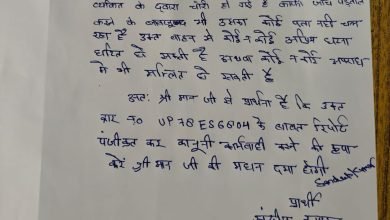 व्यक्ति के द्वारा चोरी हो गई है काफी जांच पड़ताल
करने के बावजूद भी उसका कोई पता नहीं चल
रहा है उक्त वाहन से कोई न कोई अप्रिय घटना
घटित हो सकती है अथवा कोई न कोई अपराध
में भी सम्मिलित हो सकती है
अतः श्री मान जी से प्रार्थना है कि उक्त
कार नं० UP78ES6604 के बाबत रिपोर्ट
पंजीकृत कर कानूनी कार्यवाही करने की कृपा
करें श्री मान जी की महान दया होगी
Sandeep Kumar
प्रार्थी